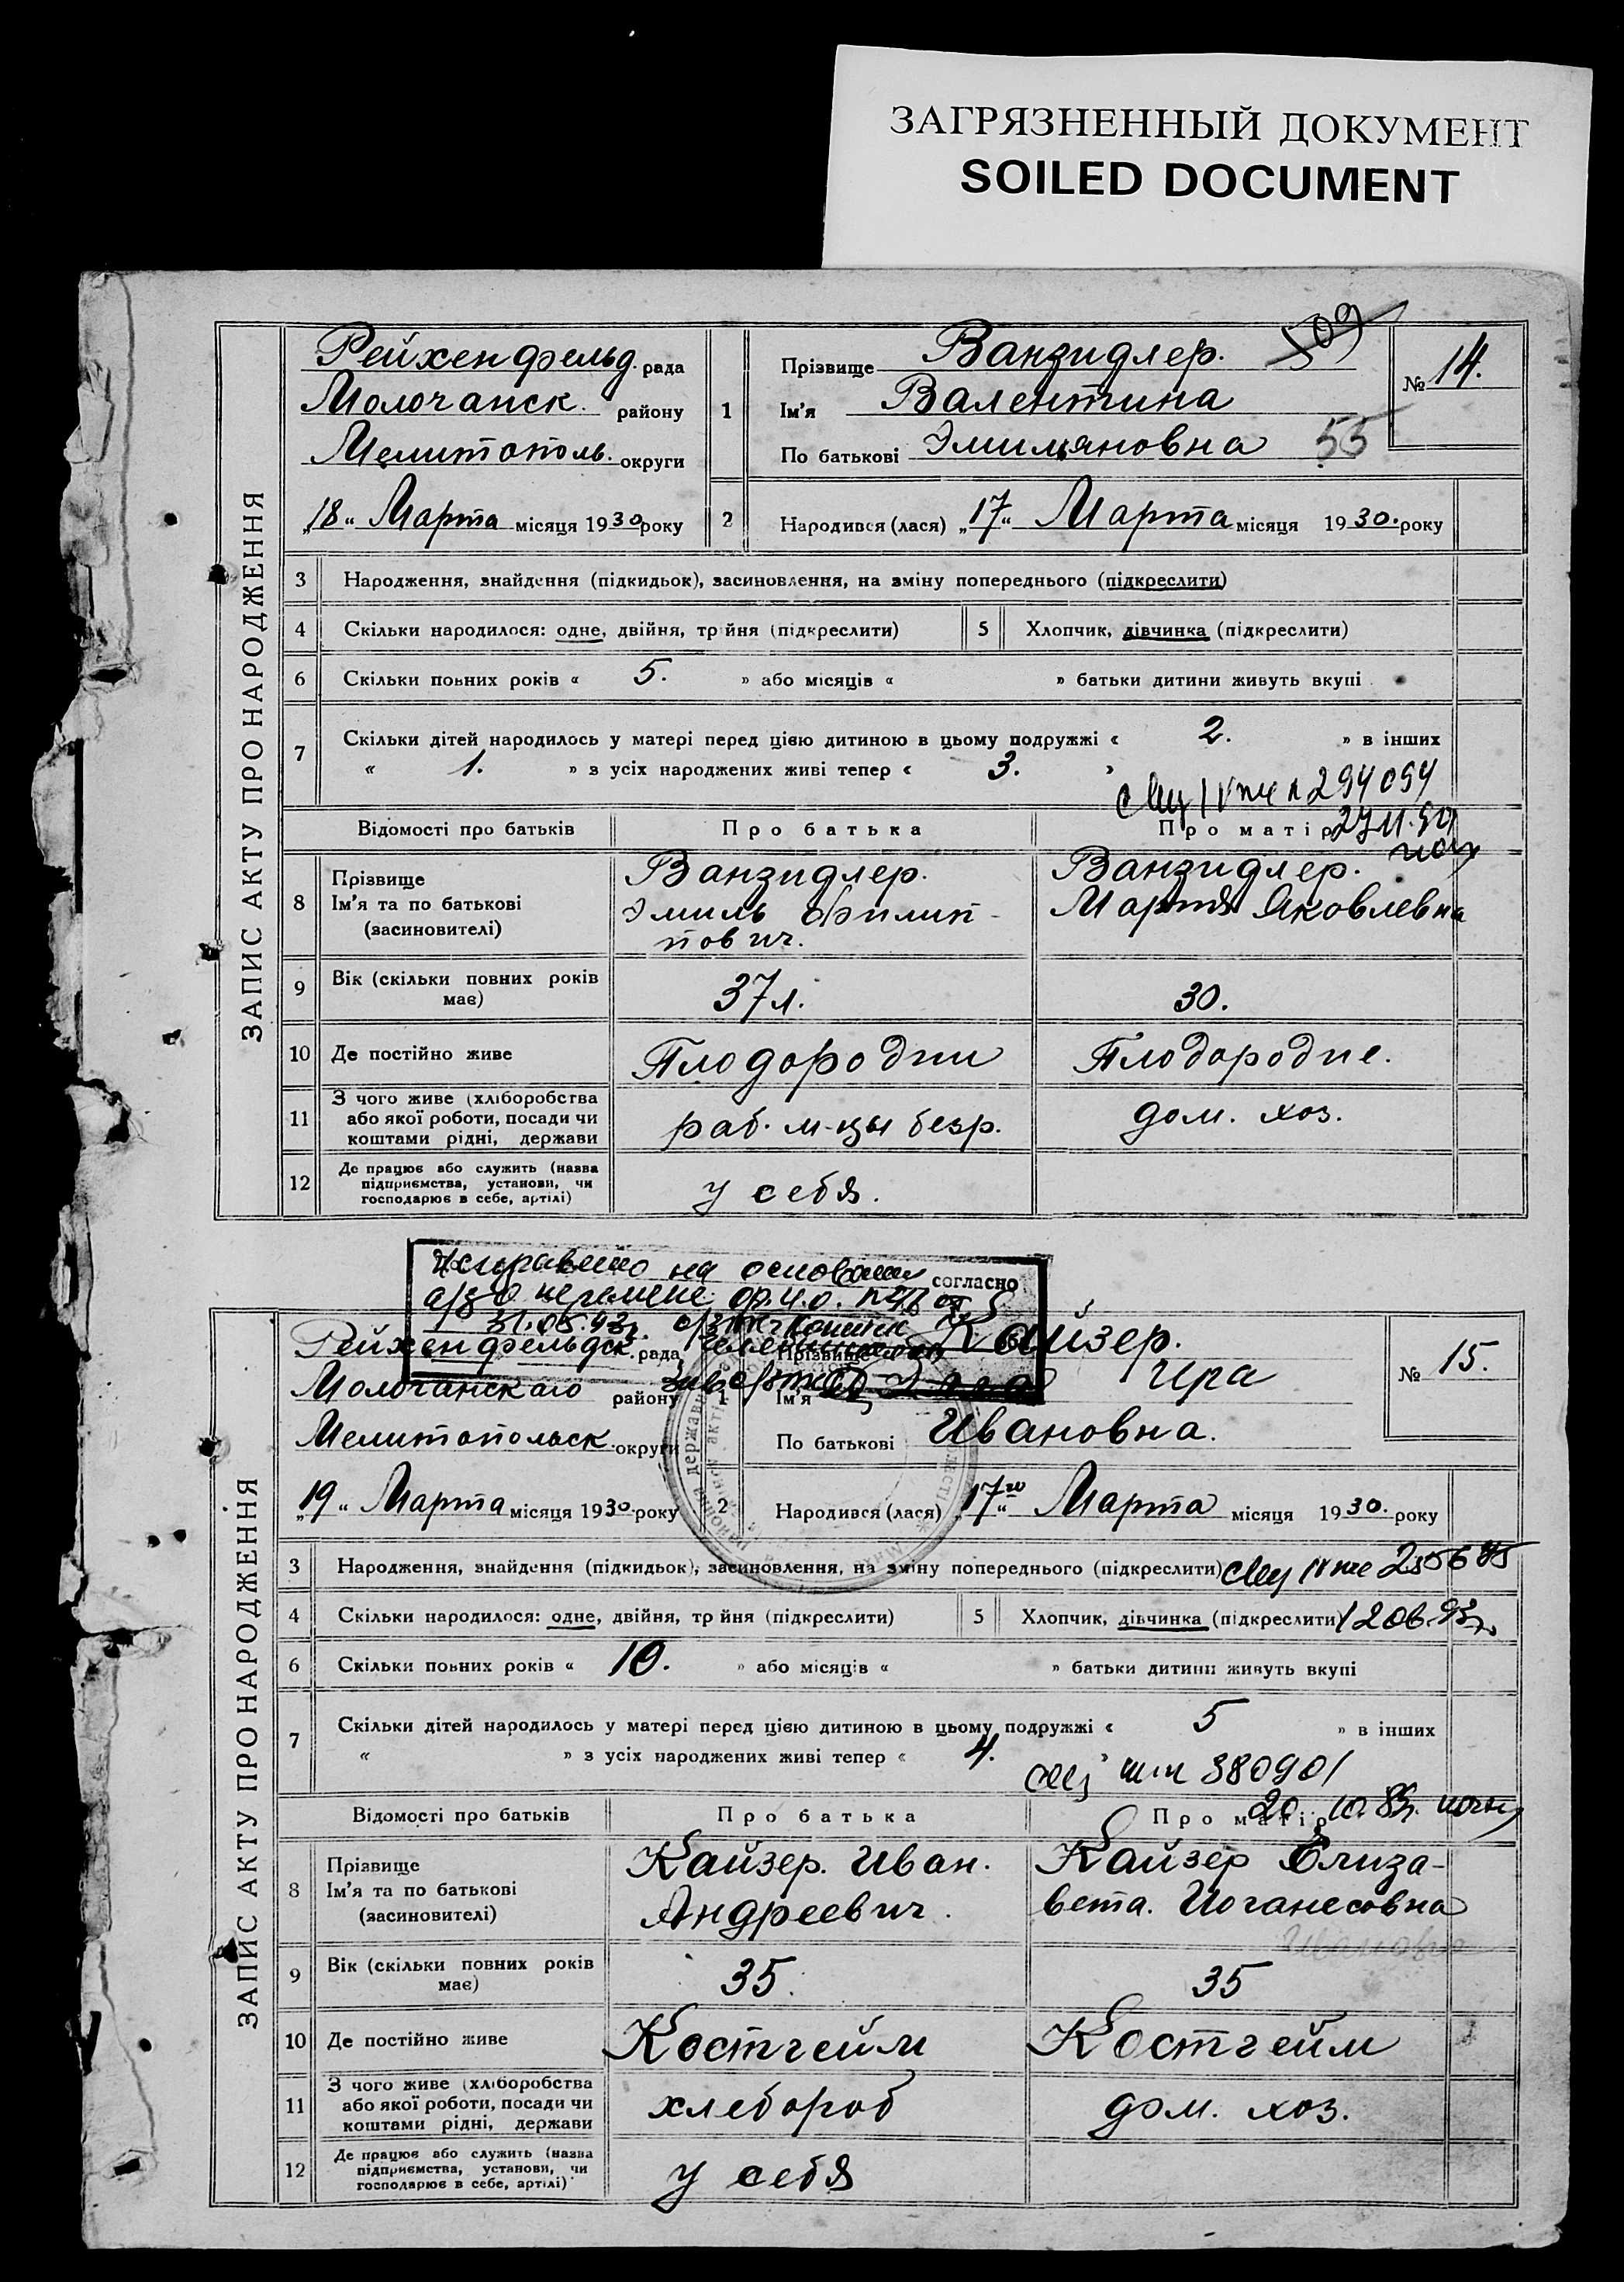 ЗАГРЯЗНЕННЫЙ ДОКУМЕНТ
SOILED DOCUMENT
ЗАПИС АКТУ ПРО НАРОДЖЕННЯ
Рейхенфельд. рада
Молочанск. району
Мелитополь. округи
„18“ Марта місяця 1930 року
1 Прізвище Ванзидлер. 509
Ім'я Валентина
По батькові Эмильяновна 55
№ 14.
2 Народився (лася) „17“ Марта місяця 1930. року
3 Народження, знайдення (підкидьок), засиновлення, на зміну попереднього (підкреслити)
4 Скільки народилося: одне, двійня, тр йня (підкреслити) 5 Хлопчик, дівчинка (підкреслити)
6 Скільки повних років « 5. » або місяців « » батьки дитини живуть вкупі
7 Скільки дітей народилось у матері перед цією дитиною в цьому подружжі « 2. » в інших
« 1. » з усіх народжених живі тепер « 3. »
294094
Відомості про батьків Про батька Про матір
8 Прізвище Ім'я та по батькові (засиновителі)
Ванзидлер. Эмиль Филип-
пович.
Ванзидлер.
Марта Яковлевна
9 Вік (скільки повних років має) 37 л. 30.
10 Де постійно живе Плодородни Плодородне.
11 З чого живе (хліборобства або якої роботи, посади чи коштами рідні, держави раб. м-цы безр. дом. хоз.
12 Де працює або служить (назва підприємства, установи, чи господарює в себе, артілі) у себя.
Исправлено на основании согласно
31.05.93г.
ЗАПИС АКТУ ПРО НАРОДЖЕННЯ
Рейхенфельдск. рада
Молочанскаго району
Мелитопольск. округи
„19“ Марта місяця 1930. року
1 Прізвище Кайзер.
Ім'я Ира
По батькові Ивановна.
№ 15.
2 Народився (лася) „17го“ Марта місяця 1930. року
3 Народження, знайдення (підкидьок), засиновлення, на зміну попереднього (підкреслити)
4 Скільки народилося: одне, двійня, тр йня (підкреслити) 5 Хлопчик, дівчинка (підкреслити)
6 Скільки повних років « 10. » або місяців « » батьки дитини живуть вкупі
7 Скільки дітей народилось у матері перед цією дитиною в цьому подружжі « 5 » в інших
« » з усіх народжених живі тепер « 4. »
380901
Відомості про батьків Про батька Про матір
8 Прізвище Ім'я та по батькові (засиновителі)
Кайзер. Иван.
Андреевич.
Кайзер Елиза-
вета. Иоганесовна
Ивановна
9 Вік (скільки повних років має) 35. 35
10 Де постійно живе Костгейм Костгейм
11 З чого живе (хліборобства або якої роботи, посади чи коштами рідні, держави хлебороб дом. хоз.
12 Де працює або служить (назва підприємства, установи, чи господарює в себе, артілі) у себя